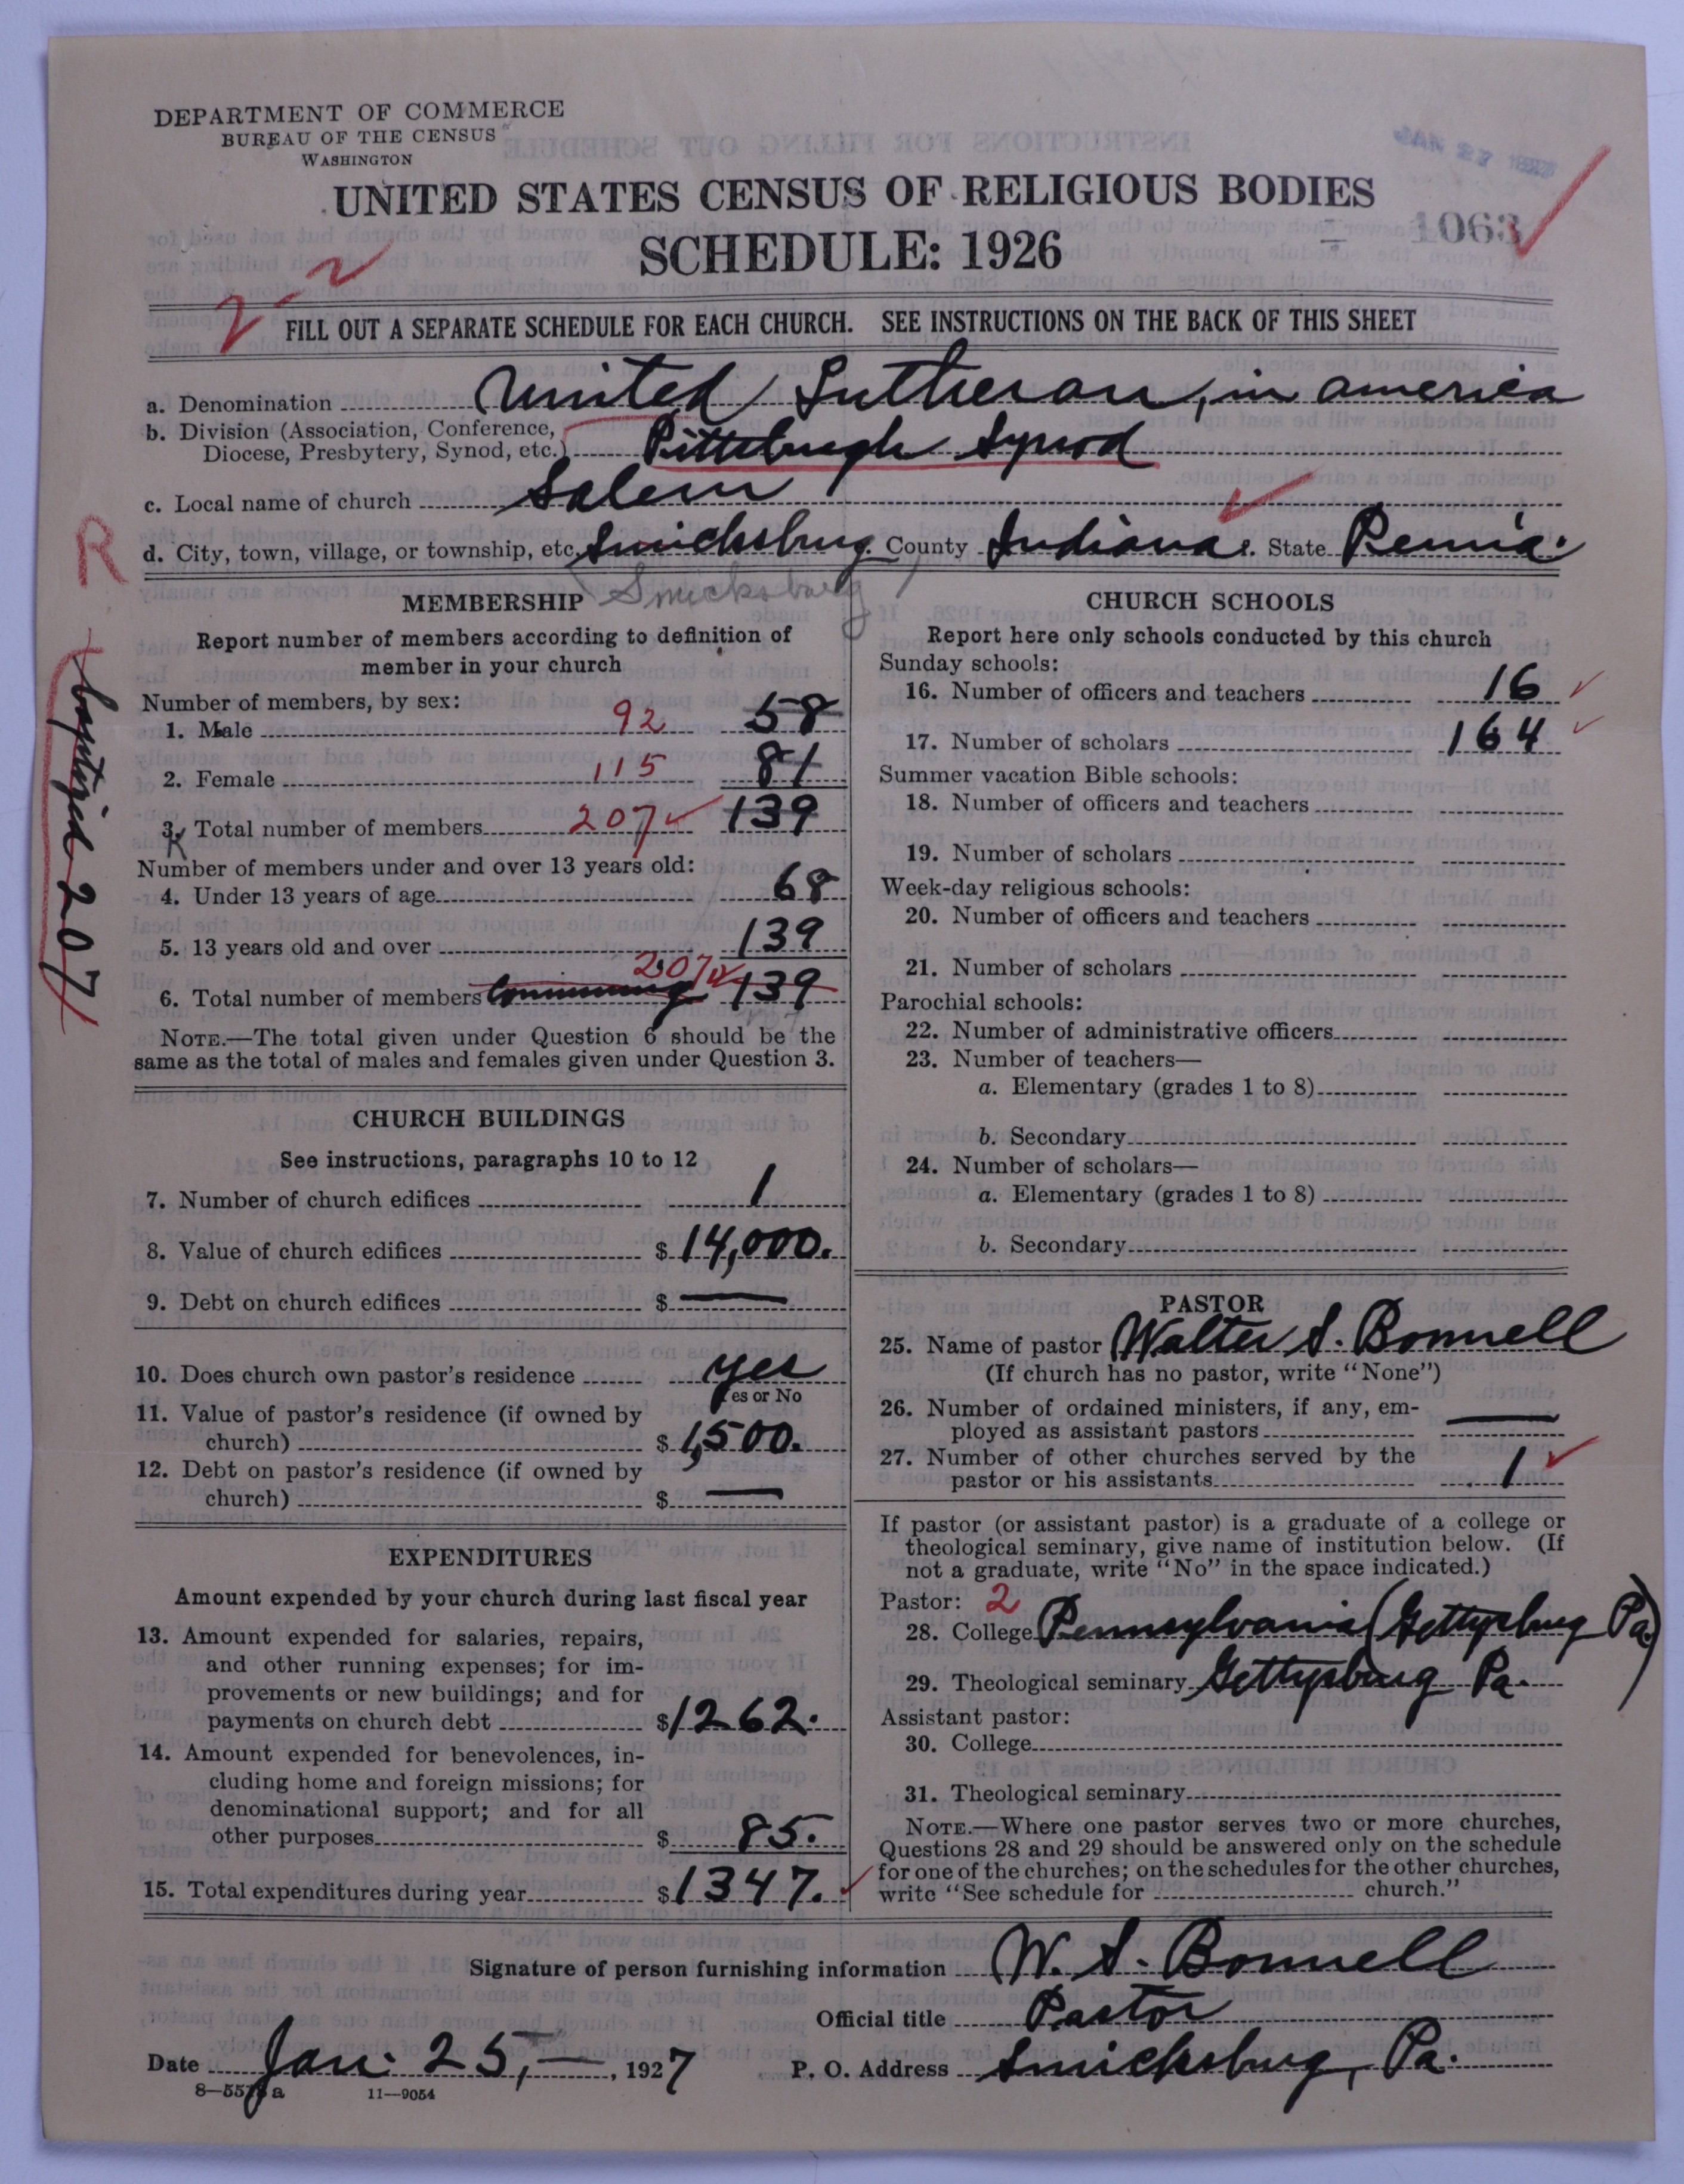 DEPARTMENT OF COMMERCE
BUREAU OF THE CENSUS
WASHINGTON
UNITED STATES CENSUS OF RELIGIOUS BODIES
SCHEDULE: 1926
1063
FILL OUT A SEPARATE SCHEDULE FOR EACH CHURCH. SEE INSTRUCTIONS ON THE BACK OF THIS SHEET
a. Denomination United Lutheran, in america
b. Division (Association, Conference,
Diocese, Presbytery, Synod, etc.) Pittsburgh Synod
c. Local name of church Salem
d. City, town, village, or township, etc. Smicksburg County Indiana State Penn'a.
Smicksburg
R
baptized 207
MEMBERSHIP
Report number of members according to definition of
member in your church
Number of members, by sex:
1. Male 92 58
2. Female 115 81
3. Total number of members 207 139
Number of members under and over 13 years old:
4. Under 13 years of age 68
5. 13 years old and over 139
6. Total number of members 207 139
NOTE.—The total given under Question 6 should be the
same as the total of males and females given under Question 3.
CHURCH BUILDINGS
See instructions, paragraphs 10 to 12
7. Number of church edifices 1
8. Value of church edifices $ 14,000.
9. Debt on church edifices $ —
10. Does church own pastor's residence yes
Yes or No
11. Value of pastor's residence (if owned by
church) $ 1,500.
12. Debt on pastor's residence (if owned by
church) $ —
EXPENDITURES
Amount expended by your church during last fiscal year
13. Amount expended for salaries, repairs,
and other running expenses; for im-
provements or new buildings; and for
payments on church debt $ 1262.
14. Amount expended for benevolences, in-
cluding home and foreign missions; for
denominational support; and for all
other purposes $ 85.
15. Total expenditures during year $ 1347.
CHURCH SCHOOLS
Report here only schools conducted by this church
Sunday schools:
16. Number of officers and teachers 16
17. Number of scholars 164
Summer vacation Bible schools:
18. Number of officers and teachers
19. Number of scholars
Week-day religious schools:
20. Number of officers and teachers
21. Number of scholars
Parochial schools:
22. Number of administrative officers
23. Number of teachers—
a. Elementary (grades 1 to 8)
b. Secondary
24. Number of scholars—
a. Elementary (grades 1 to 8)
b. Secondary
PASTOR
25. Name of pastor Walter S. Bonnell
(If church has no pastor, write "None")
26. Number of ordained ministers, if any, em-
ployed as assistant pastors —
27. Number of other churches served by the
pastor or his assistants 1
If pastor (or assistant pastor) is a graduate of a college or
theological seminary, give name of institution below. (If
not a graduate, write "No" in the space indicated.)
Pastor: 2
28. College Pennsylvania (Gettysburg Pa.)
29. Theological seminary Gettysburg Pa.
Assistant pastor:
30. College
31. Theological seminary
NOTE.—Where one pastor serves two or more churches,
Questions 28 and 29 should be answered only on the schedule
for one of the churches; on the schedules for the other churches,
write "See schedule for church."
Signature of person furnishing information W. S. Bonnell
Official title Pastor
Date Jan. 25, —, 1927 P. O. Address Smicksburg, Pa.
11—9054